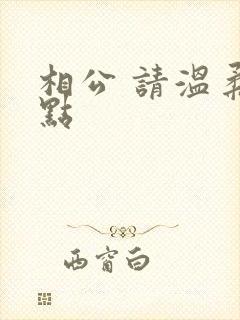 相公 請溫柔
點
西窗白